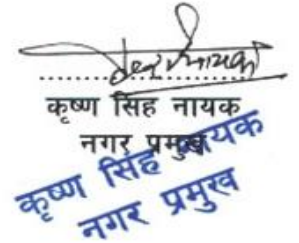 ....................
कृष्ण सिंह नायक
नगर प्रमुख
कृष्ण सिंह नायक
नगर प्रमुख